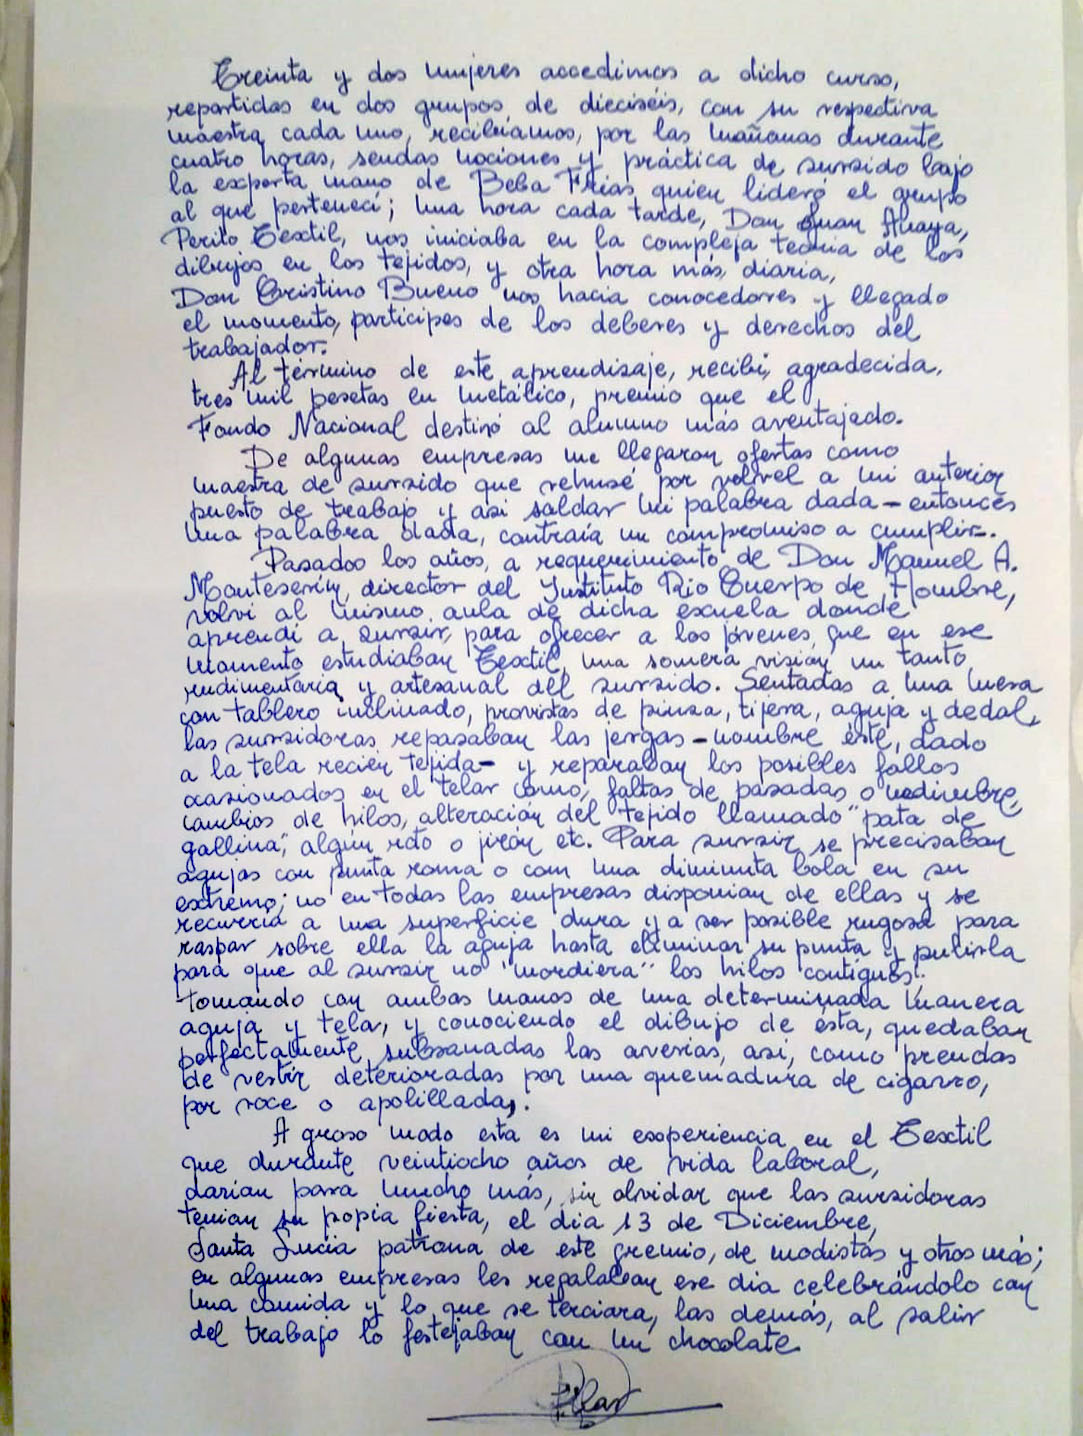 Treinta y dos mujeres accedimos a dicho curso,
repartidas en dos grupos de dieciséis, con su respectiva
maestra cada uno, recibíamos, por las mañanas durante
cuatro horas, sendas nociones y práctica de zurzido bajo
la experta mano de Beba Frías quien lideró el grupo
al que pertenecí; una hora cada tarde, Don Juan Anaya,
Perito Textil, nos iniciaba en la compleja teoría de los
dibujos en los tejidos, y otra hora más, diaria,
Don Cristino Bueno nos hacía conocedores y llegado
el momento, partícipes de los deberes y derechos del
trabajador.
Al término de este aprendizaje, recibí, agradecida,
tres mil pesetas en metálico, premio que el
Fondo Nacional destinó al alumno más aventajado.
De algunas empresas me llegaron ofertas como
maestra de zurzido que rehusé por volver a mi anterior
puesto de trabajo y así saldar mi palabra dada - entonces
una palabra dada, contraía un compromiso a cumplir -.
Pasados los años, a requerimiento de Don Manuel A.
Monteserín, director del Instituto Río Cuerpo de Hombre,
volví al mismo aula de dicha escuela donde
aprendí a zurzir, para ofrecer a los jóvenes que en ese
momento estudiaban Textil, una somera visión un tanto
rudimentaria y artesanal del zurzido. Sentadas a una mesa
con tablero inclinado, provistas de pinza, tijera, aguja y dedal,
las zurzidoras repasaban las jergas - nombre éste, dado
a la tela recién tejida - y reparaban los posibles fallos
ocasionados en el telar como; faltas de pasadas o urdimbre,
cambios de hilos, alteración del tejido llamado "pata de
gallina", algún roto o jirón etc. Para zurzir se precisaban
agujas con punta roma o con una diminuta bola en su
extremo; no en todas las empresas disponían de ellas y se
recurría a una superficie dura y a ser posible rugosa para
raspar sobre ella la aguja hasta eliminar su punta y pulirla
para que al zurzir no "mordiera" los hilos contiguos.
Tomando con ambas manos de una determinada manera
aguja y telar, y conociendo el dibujo de ésta, quedaban
perfectamente subsanadas las averías, así, como prendas
de vestir deterioradas por una quemadura de cigarro,
por roce o apolillada,.
A groso modo esta es mi experiencia en el Textil
que durante veintiocho años de vida laboral,
darían para mucho más, sin olvidar que las zurzidoras
tenían su popia fiesta, el día 13 de Diciembre,
Santa Lucía patrona de este gremio, de modistas y otros más;
en algunas empresas les regalaban ese día celebrándolo con
una comida y lo que se terciara, las demás, al salir
del trabajo lo festejaban con un chocolate
Pilar